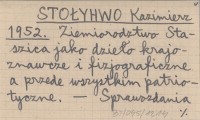 STOŁYHWO Kazimierz
1952. Ziemiorodztwo Sta-
szica jako dzieło krajo-
znawcze i fizjograficzne
a przede wszystkim patrio-
tyczne. — Sprawozdania
%